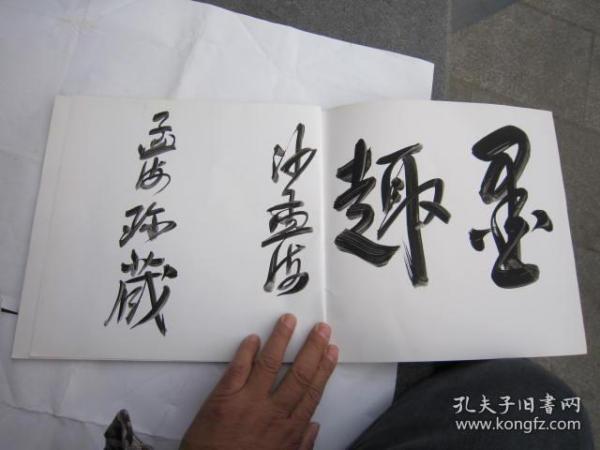 墨趣
沙孟海
孟海珍藏
孔夫子旧書网
www.kongfz.com